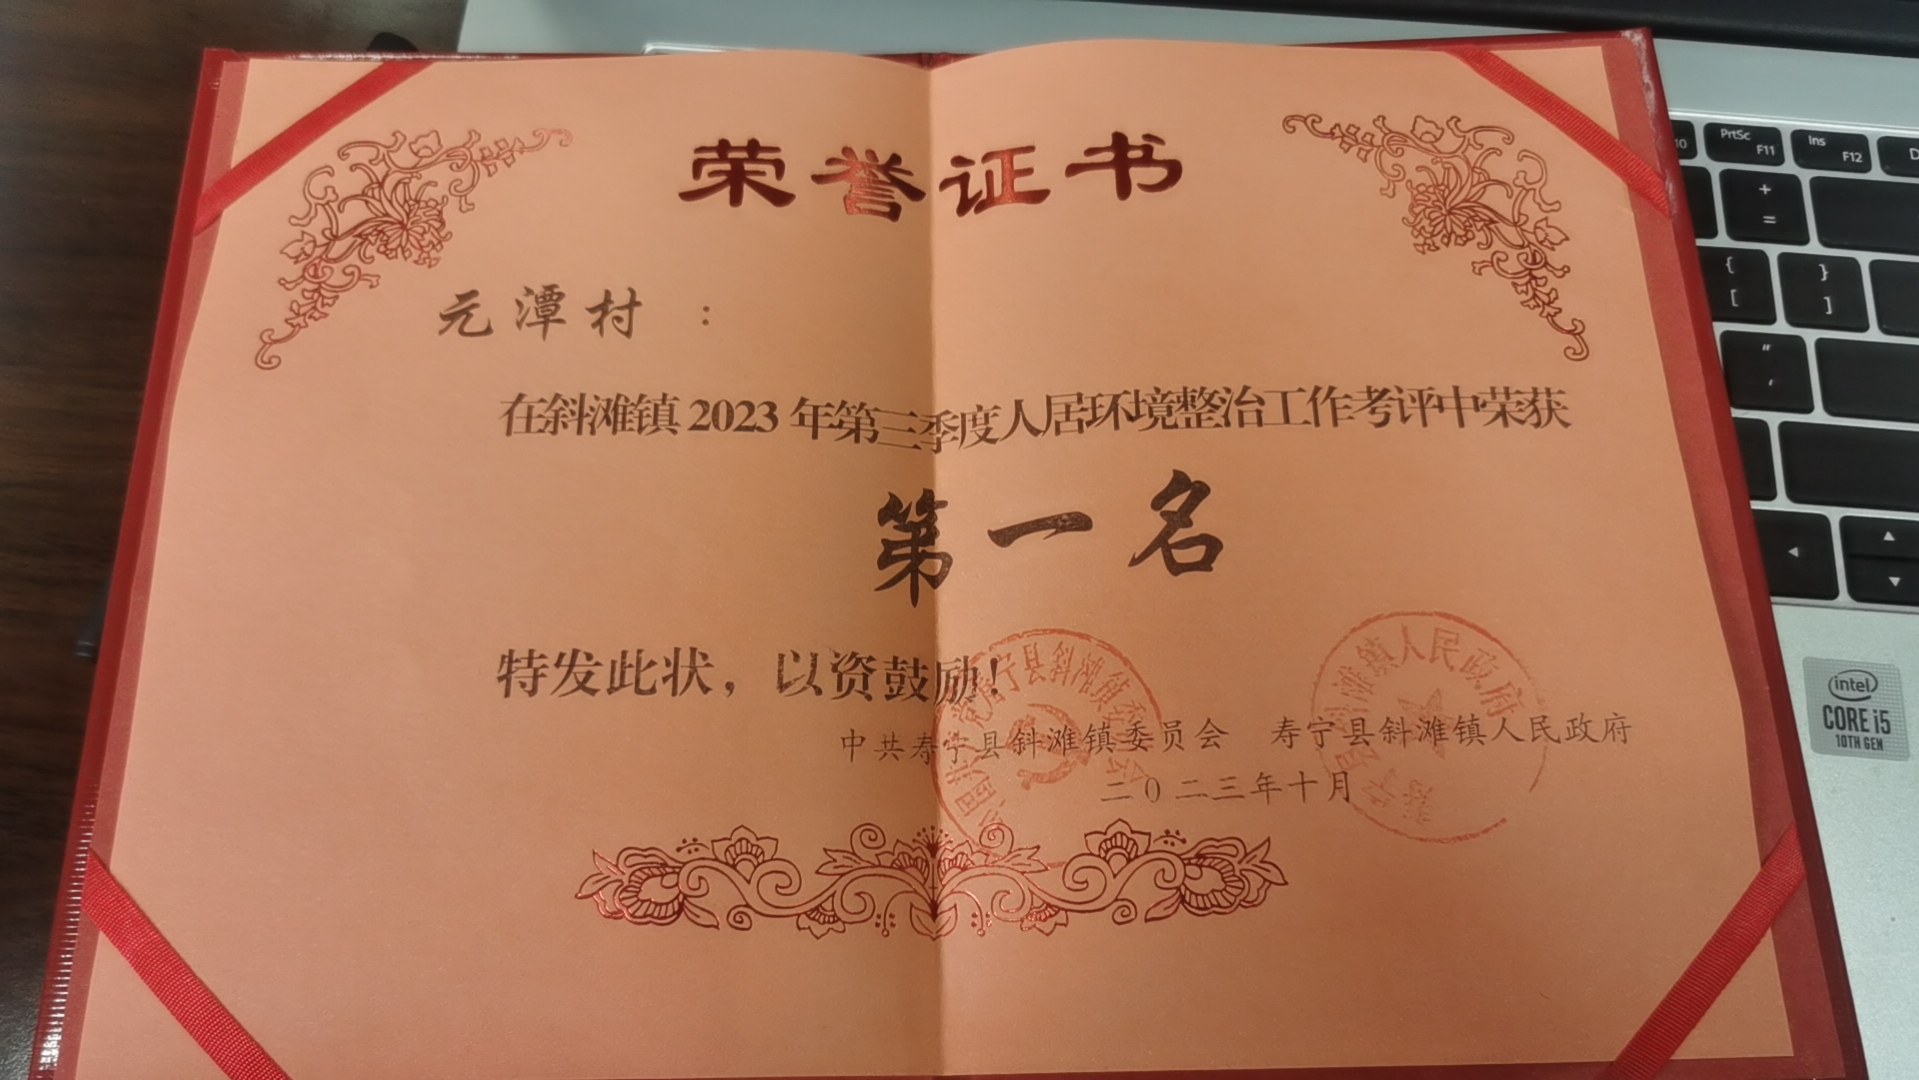 荣誉证书
元潭村 ：
在斜滩镇2023年第三季度人居环境整治工作考评中荣获
第一名
特发此状，以资鼓励！
中共寿宁县斜滩镇委员会 寿宁县斜滩镇人民政府
二0二三年十月
寿宁县斜滩镇人民政府
PrtSc F11
Ins F12
+ =
{ [
} ]
" '
intel
CORE i5
10TH GEN